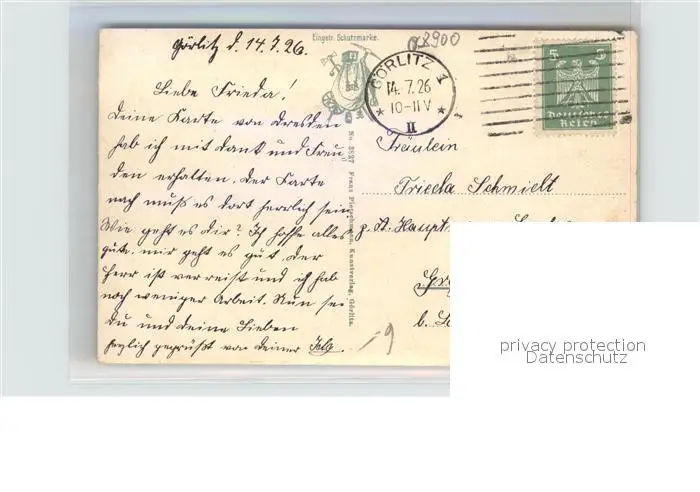 Görlitz d. 14.7.26.
Liebe Frieda!
Deine Karte von Dresden
hab ich mit Dank und Freu
den erhalten. Der Karte
nach muß es dort herrlich sein
Wie geht es dir? Ich hoffe alles
gute. mir geht es gut. Der
Herr ist verreist und ich hab
noch weniger Arbeit. Nun sei
du und deine Lieben
herzlich gegrüßt von deiner
Eingetr. Schutzmarke.
No. 3827 Kunstverlag, Görlitz.
98900
GÖRLITZ 1
14.7.26
* 10-11 V *
II
5 5
Deutsches
Reich
Fräulein
Frieda Schmidt
z. Zt. Haupt
b.
-9
privacy protection
Datenschutz